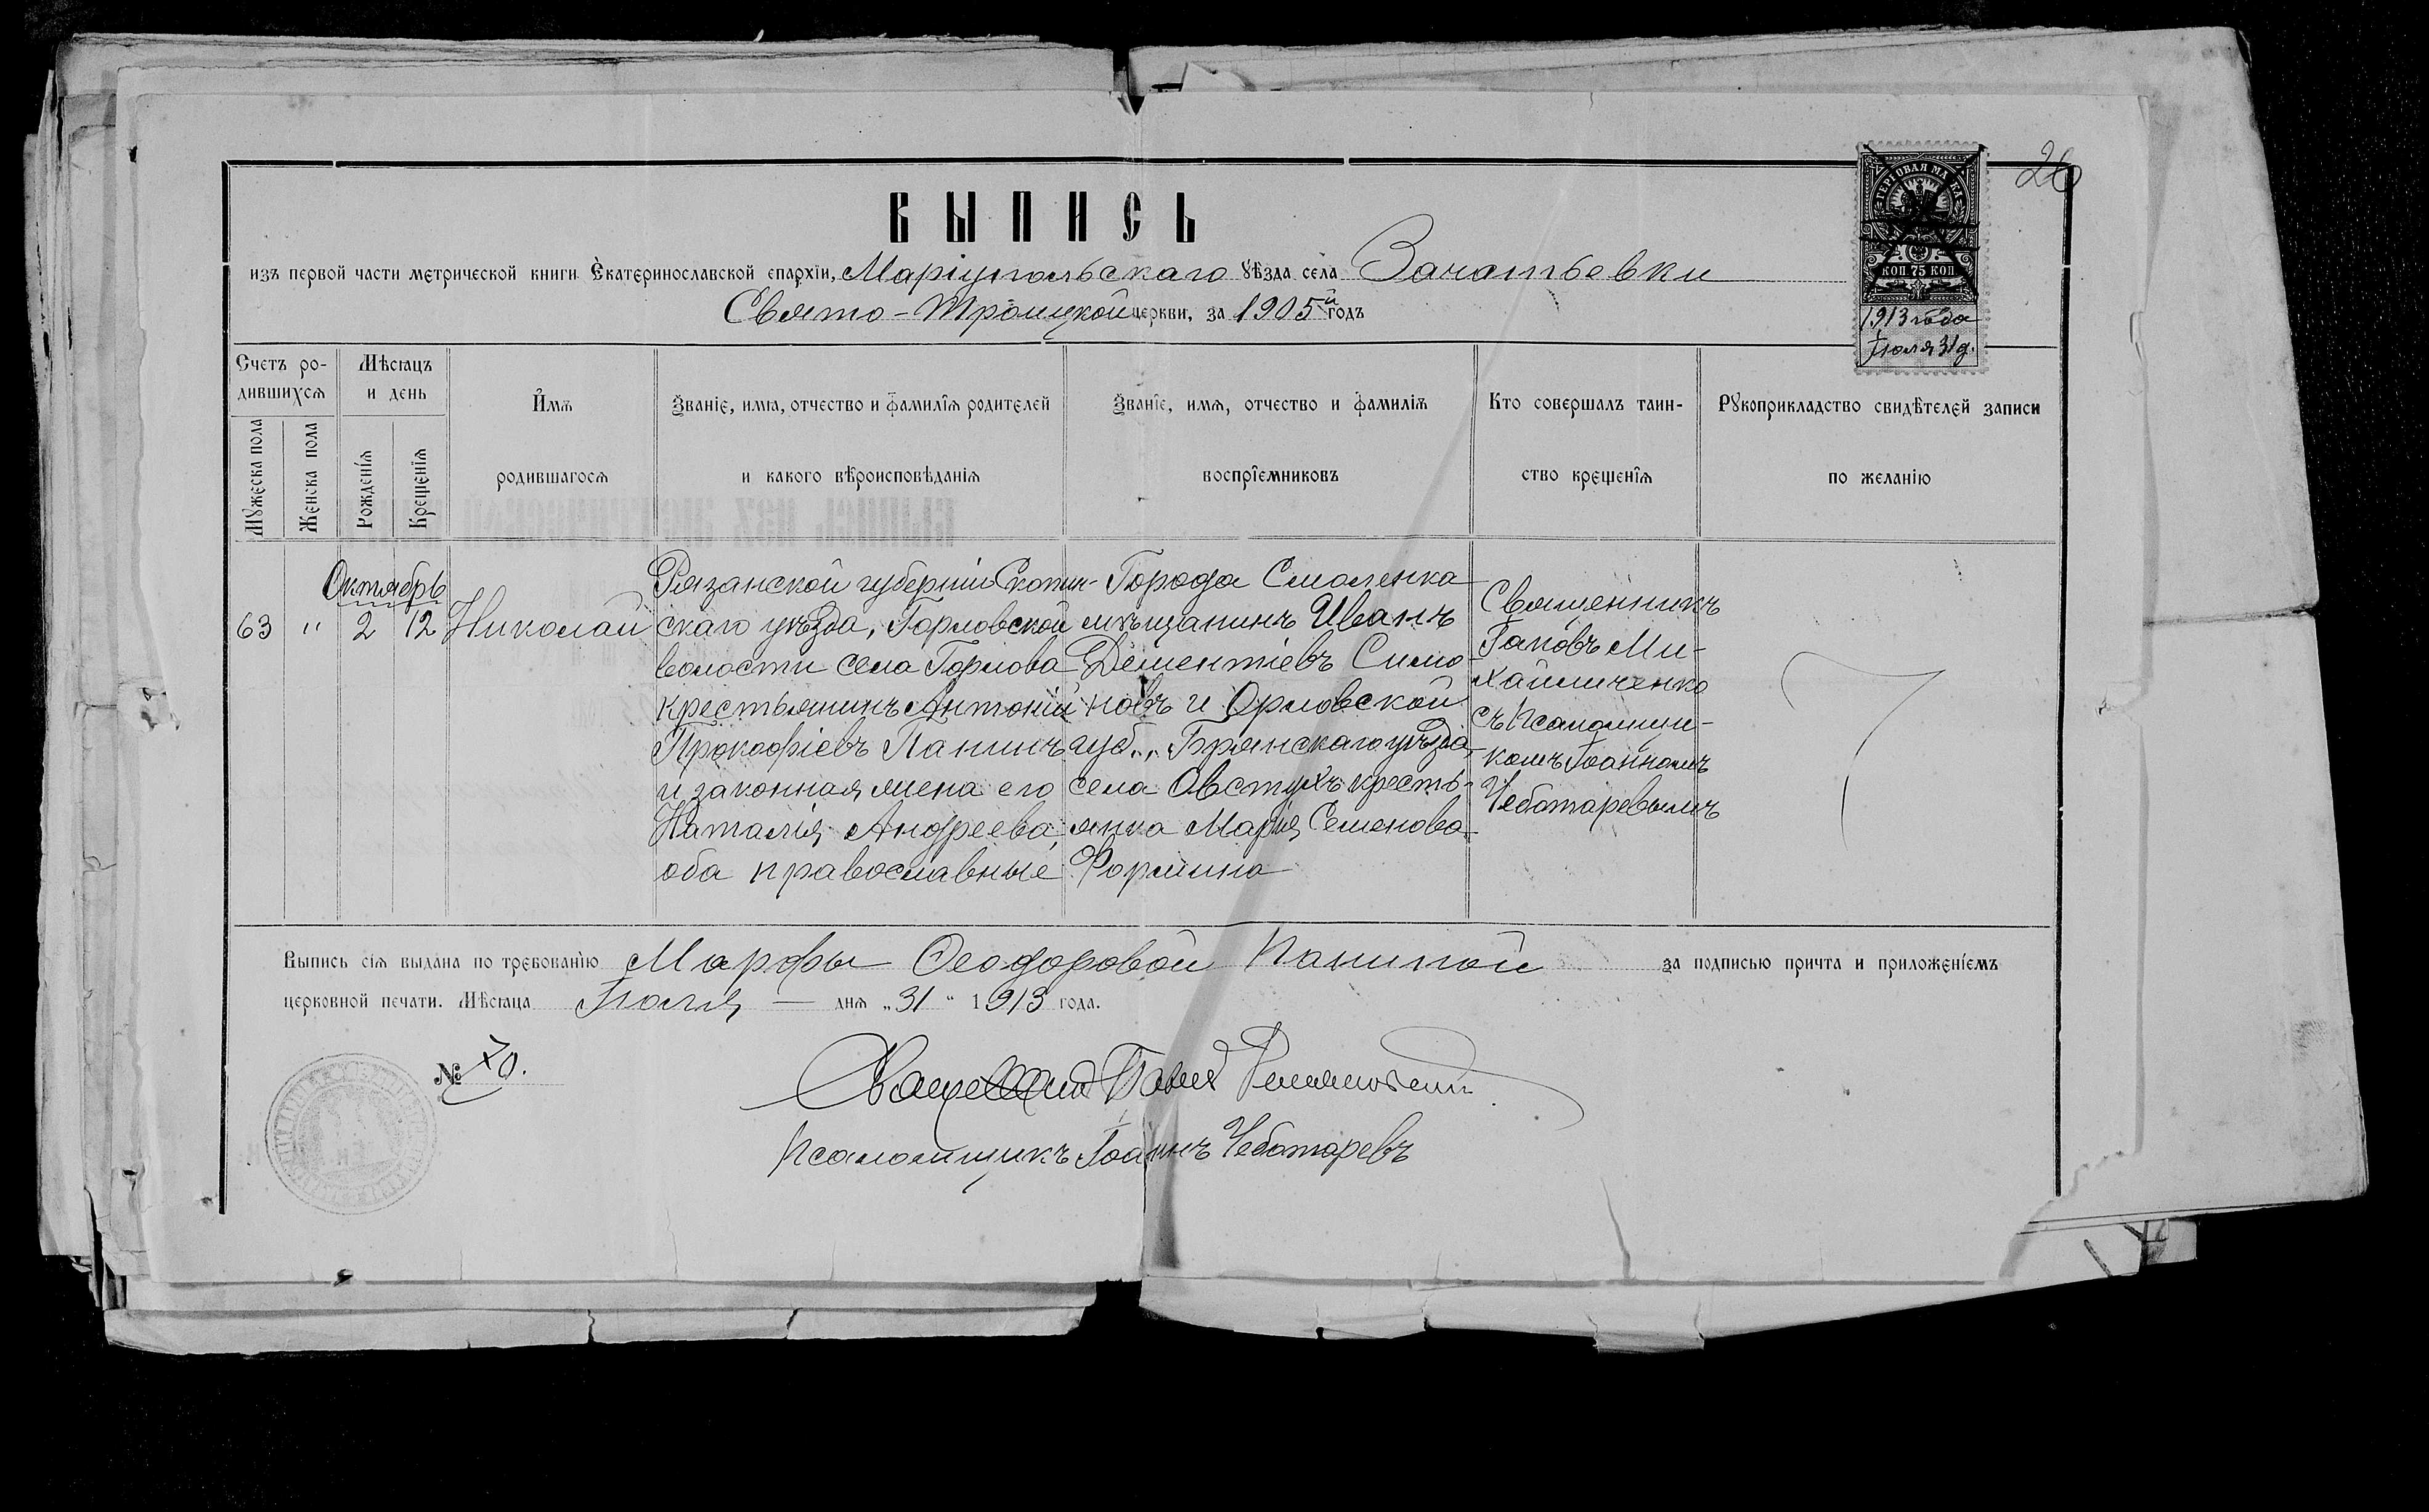 26
ГЕРБОВАЯ МАРКА
КОП 75 КОП
1913 года
Іюля 31 д.
ВЫПИСЬ
изъ первой части метрической книги Екатеринославской епархіи, Маріупольскаго уѣзда села Зачатьевки
Свято-Троицкой церкви, за 1905й годъ
Счетъ ро-
дившихся
Мужеска пола
Женска пола
Мѣсяцъ
и день
Рожденія
Крещенія
Имя
родившагося
Званіе, имя, отчество и фамилія родителей
и какого вѣроисповѣданія
Званіе, имя, отчество и фамилія
воспріемниковъ
Кто совершалъ таин-
ство крещенія
Рукоприкладство свидѣтелей записи
по желанію
63
"
Октябрь
2 12
Николай
Рязанской губерніи Скопин-
скаго уѣзда, Горловской
волости села Горлова
крестьянинъ Антоній
Прокофіевъ Панинъ
и законная жена его
Наталія Андреева,
оба православные
Города Смоленка
мѣщанинъ Иванъ
Дементіевъ Симо-
новъ и Орловской
губ., Брянскаго уѣзда,
села Овстухъ кресть-
янка Марія Семенова
Фомина
Священникъ
Іаковъ Ми-
хайличенко
съ Псаломщи-
комъ Іоанномъ
Чеботаревымъ
Выпись сія выдана по требованію Марфы Ѳеодоровой Паниной за подписью причта и приложеніемъ
церковной печати. Мѣсяца Іюля — дня „31" 1913 года.
№ 70.
Священникъ Павелъ
Псаломщикъ Іоаннъ Чеботаревъ